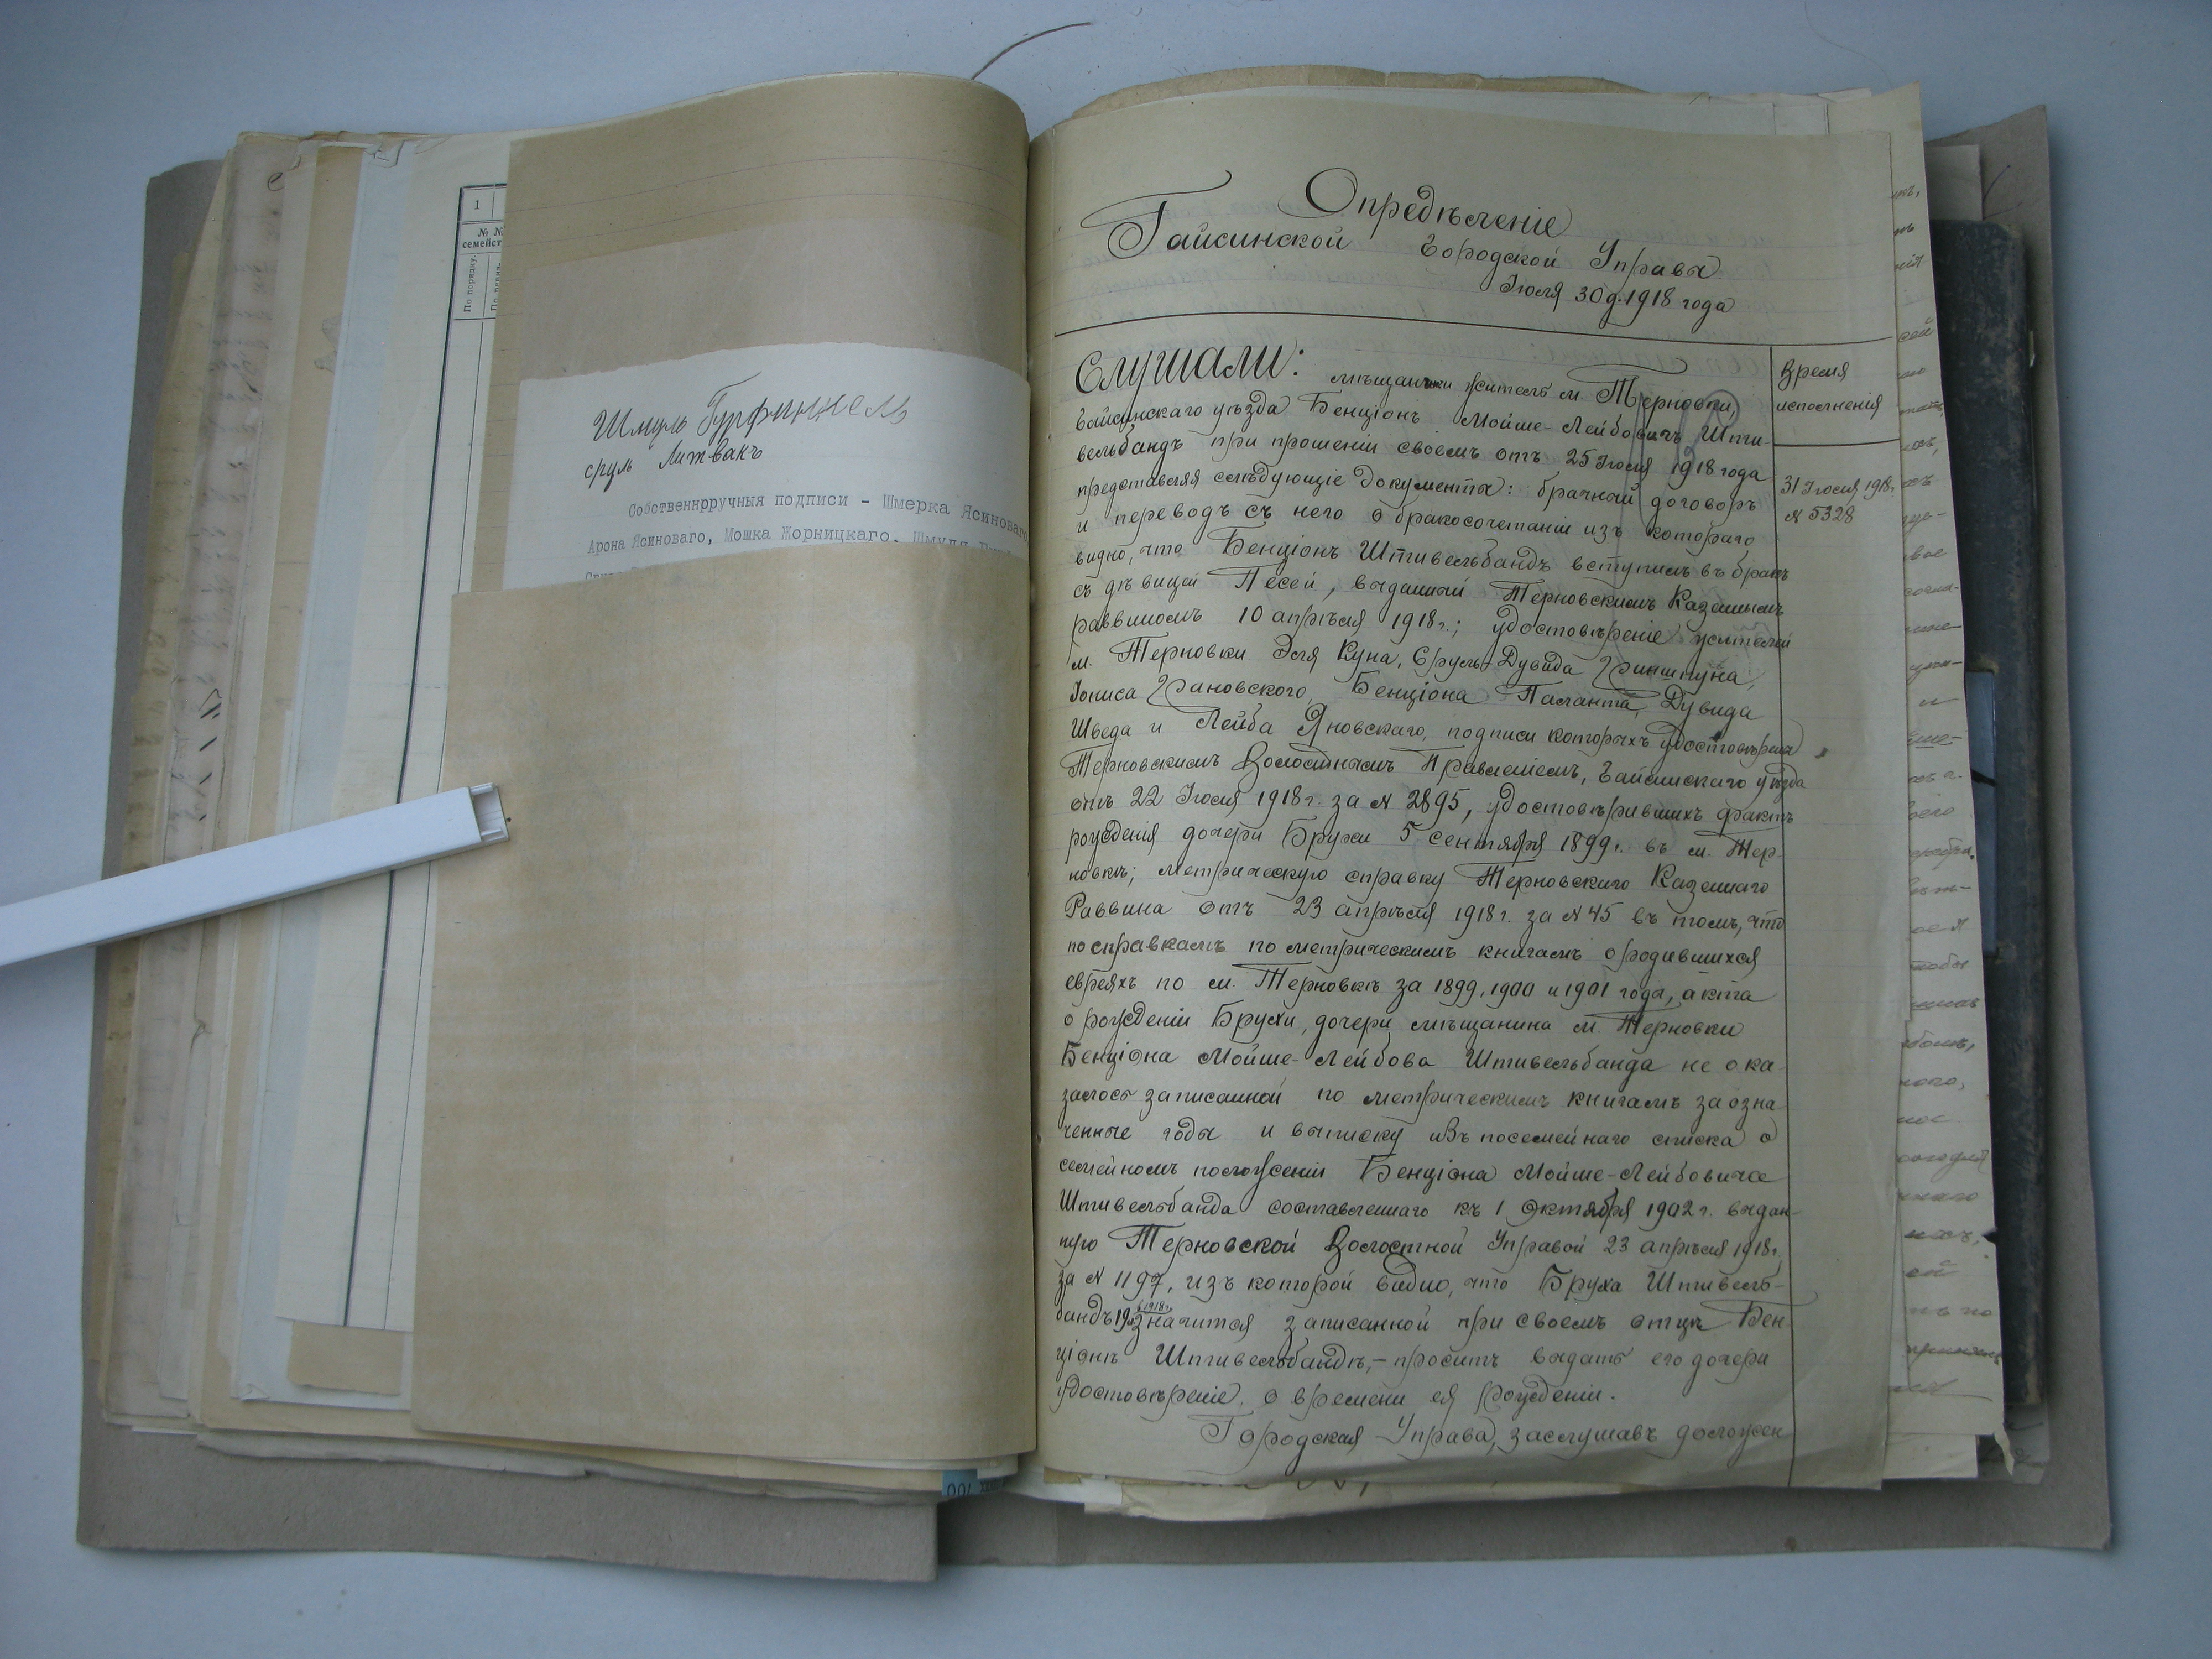 1
№ №
семейст
По порядку.
Шмуль Гурфинкель
сруль Литвакъ
Собственнрручныя подписи - Шмерка Ясиноваго
Арона Ясиноваго, Мошка Жорницкаго, Шмуля
Опредѣленіе
Гайсинской Городской Управы
Іюля 30 д. 1918 года
Слушали: мѣщанинъ житель м. Терновки,
Гайсинскаго уѣзда Бенціонъ Мойше-Лейбовичъ Шти-
вельбандъ при прошеніи своемъ отъ 25 Іюля 1918 года
представляя слѣдующіе документы: брачный договоръ
и переводъ съ него о бракосочетаніи изъ котораго
видно, что Бенціонъ Штивельбандъ вступилъ въ бракъ
съ дѣвицей Песей, выданный Терновскимъ Казеннымъ
раввиномъ 10 апрѣля 1918 г.; удостовѣреніе жителей
м. Терновки Эля Куна, Сруль-Дувида Гриншпуна,
Іониса Грановского, Бенціона Паланта, Дувида
Шведа и Лейба Яновскаго, подписи которыхъ удостовѣрена
Терновскимъ Волостнымъ Правленіемъ, Гайсинскаго уѣзда
отъ 22 Іюля 1918 г. за № 2895, удостовѣрившихъ фактъ
рожденія дочери Брухи 5 сентября 1899 г. въ м. Тер-
новкѣ; метрическую справку Терновскаго Казеннаго
Раввина отъ 23 апрѣля 1918 г. за № 45 въ томъ, что
по справкамъ по метрическимъ книгамъ о родившихся
евреяхъ по м. Терновкѣ за 1899, 1900 и 1901 года, акта
о рожденіи Брухи, дочери мѣщанина м. Терновки
Бенціона Мойше-Лейбова Штивельбанда не ока-
залось записанной по метрическимъ книгамъ за озна-
ченные годы и выписку изъ посемейнаго списка о
семейномъ положеніи Бенціона Мойше-Лейбовича
Штивельбанда составленнаго къ 1 Октября 1902 г. выдан-
ную Терновской Волостной Управой 23 апрѣля 1918 г.
за № 1197, изъ которой видно, что Бруха Штивель-
бандъ 19 л. в 1918 г. значится записанной при своемъ отцѣ Бен-
ціонѣ Штивельбандѣ,- проситъ выдать его дочери
удостовѣреніе о времени ея рожденіи.
Городская Управа, заслушавъ доложен-
Время
исполненія
31 Іюля 1918 г.
№ 5328